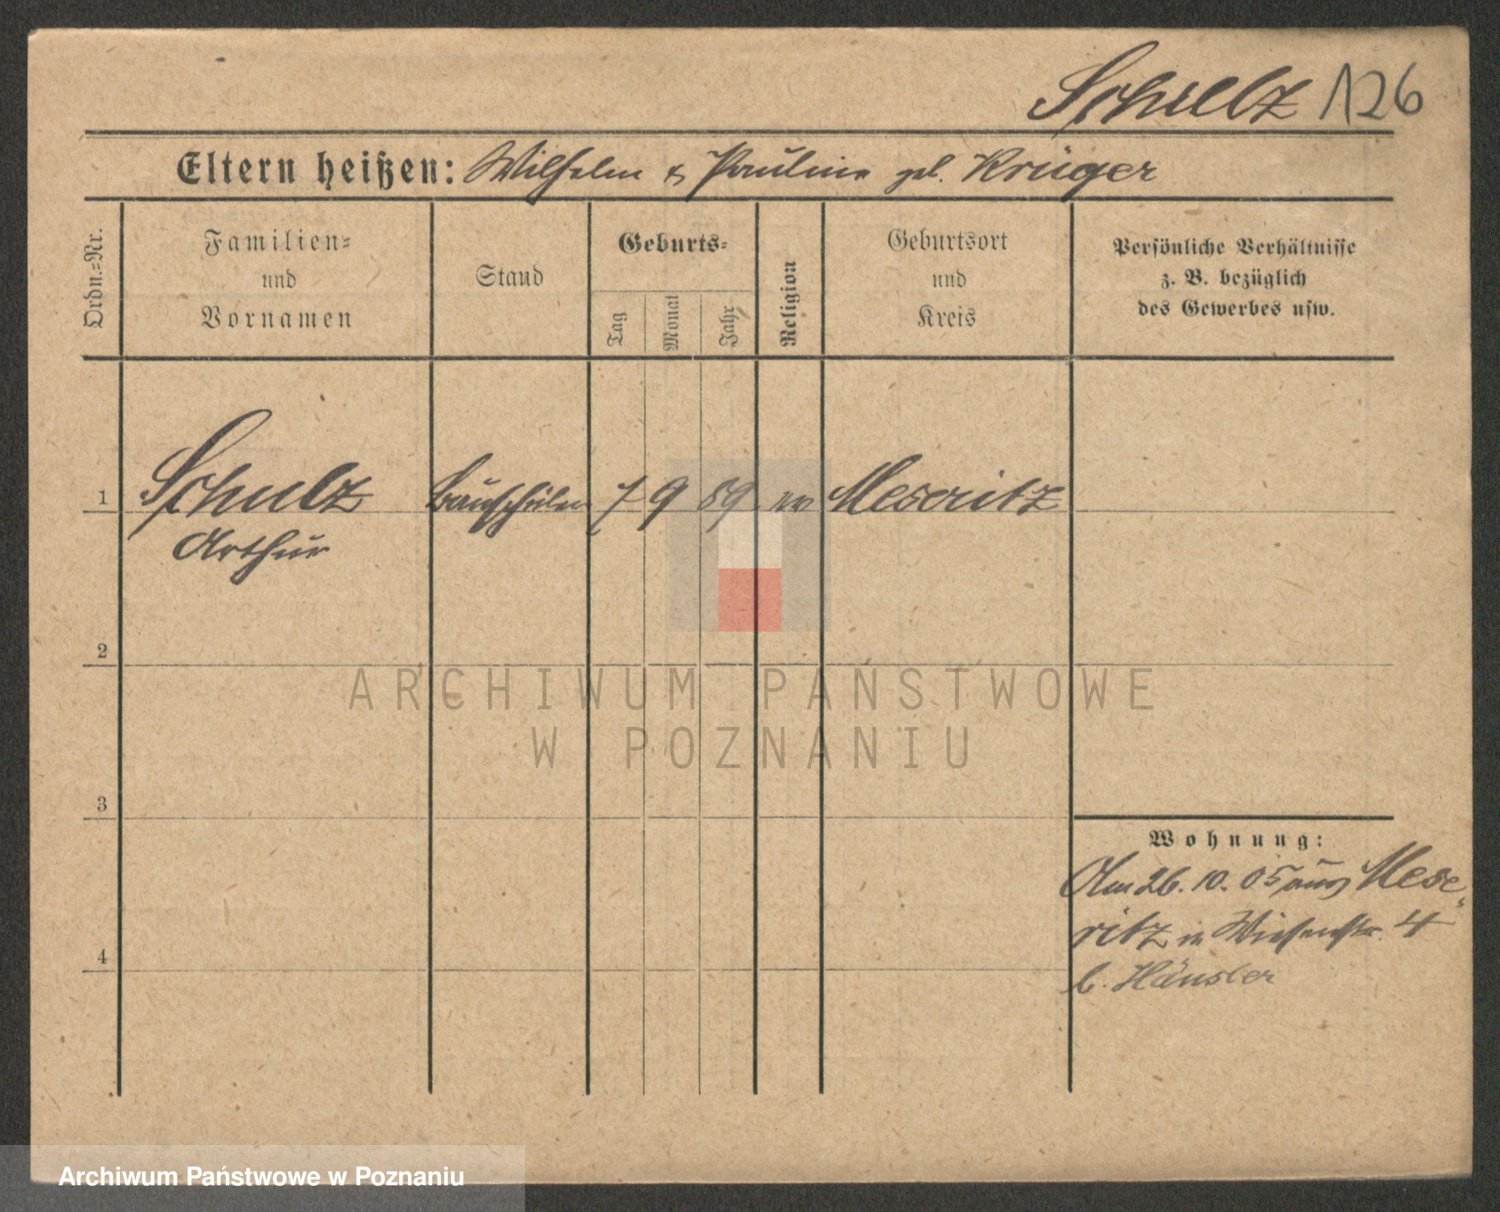 Schulz 126
Eltern heißen: Wilhelm & Pauline geb. Krüger
Ordn.=Nr.
Familien=
und
Vornamen
Stand
Geburts=
Tag
Monat
Jahr
Religion
Geburtsort
und
Kreis
Persönliche Verhältnisse
z. B. bezüglich
des Gewerbes usw.
1 Schulz Bauschüler 7 9 89 ev Meseritz
Arthur
2
ARCHIWUM PAŃSTWOWE
W POZNANIU
3
Wohnung:
Am 26. 10. 05 aus Mese-
ritz in Wiesenstr. 4
b. Hänsler
4
Archiwum Państwowe w Poznaniu